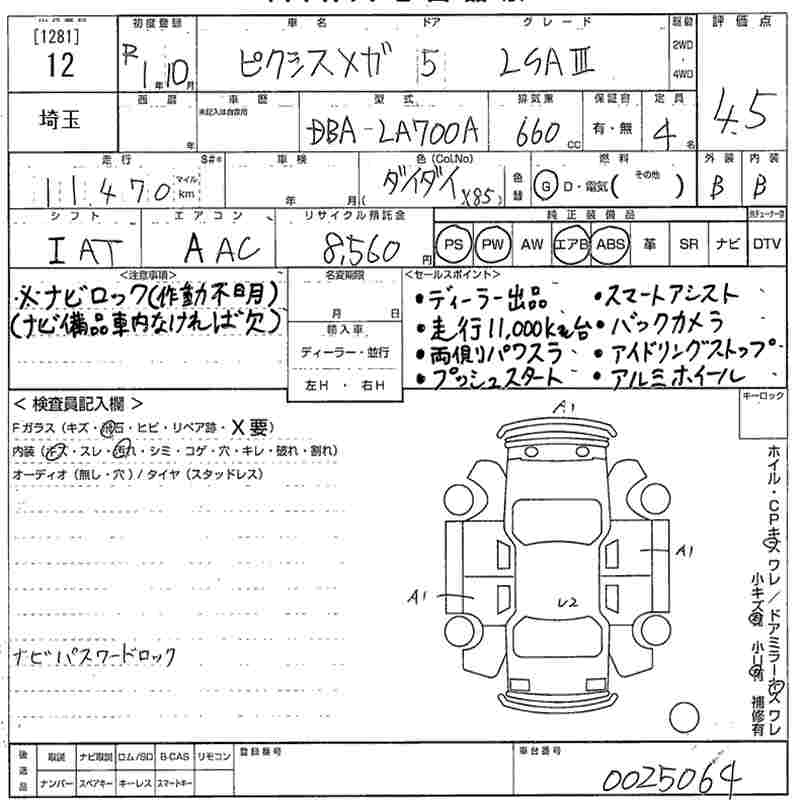 [1281]
12
初度登録
R 1年10月
車名 ドア グレード
ピクシスメガ 5 LSAⅢ
駆動
2WD
・
4WD
評価点
4.5
埼玉
西暦
年
車歴
未記入は自家用
型式
DBA-LA700A
排気量
660 cc
保証書
有・無
定員
4名
走行 S#*
11,470 マイル km
車検
年 月
色(Col.No)
ダイダイ (X85)
色替
燃料
G D・電気( その他 )
外装 内装
B B
シフト
I AT
エアコン
A AC
リサイクル預託金
8,560円
純正装備品
PS PW AW エアB ABS 革 SR ナビ DTV
<注意事項>
※ナビロック(作動不明)
(ナビ備品車内なければ欠)
名変期限
月 日
輸入車
ディーラー・並行
左H・右H
<セールスポイント>
・ディーラー出品 ・スマートアシスト
・走行11,000km台 ・バックカメラ
・両側パワスラ ・アイドリングストップ
・プッシュスタート ・アルミホイール
<検査員記入欄>
Fガラス(キズ・飛石・ヒビ・リペア跡・X要)
内装(キズ・スレ・汚れ・シミ・コゲ・穴・キレ・破れ・割れ)
オーディオ(無し・穴)/タイヤ(スタッドレス)
ナビパスワードロック
A1
A1
A1
レ2
キーロック
ホイル・CPキズ ワレ/ドアミラーキズ ワレ
小キズ有 小凹有 補修有
後送品
取説 ナビ取説 ロム/SD B-CAS リモコン
ナンバー スペアキー キーレス スマートキー
登録番号
車台番号
0025064